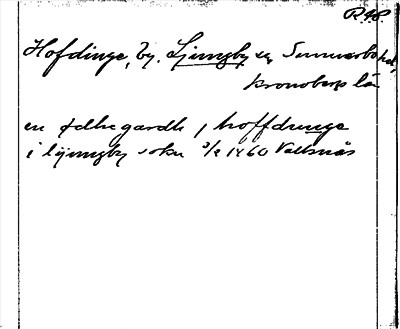 R 48.
Hofdinge, by. Ljungby sn, Sunnerbo hd,
Kronobergs län
en ødhe gardh j hoffdinge
i lijungby sokn 3/2 1460 Vallsnäs